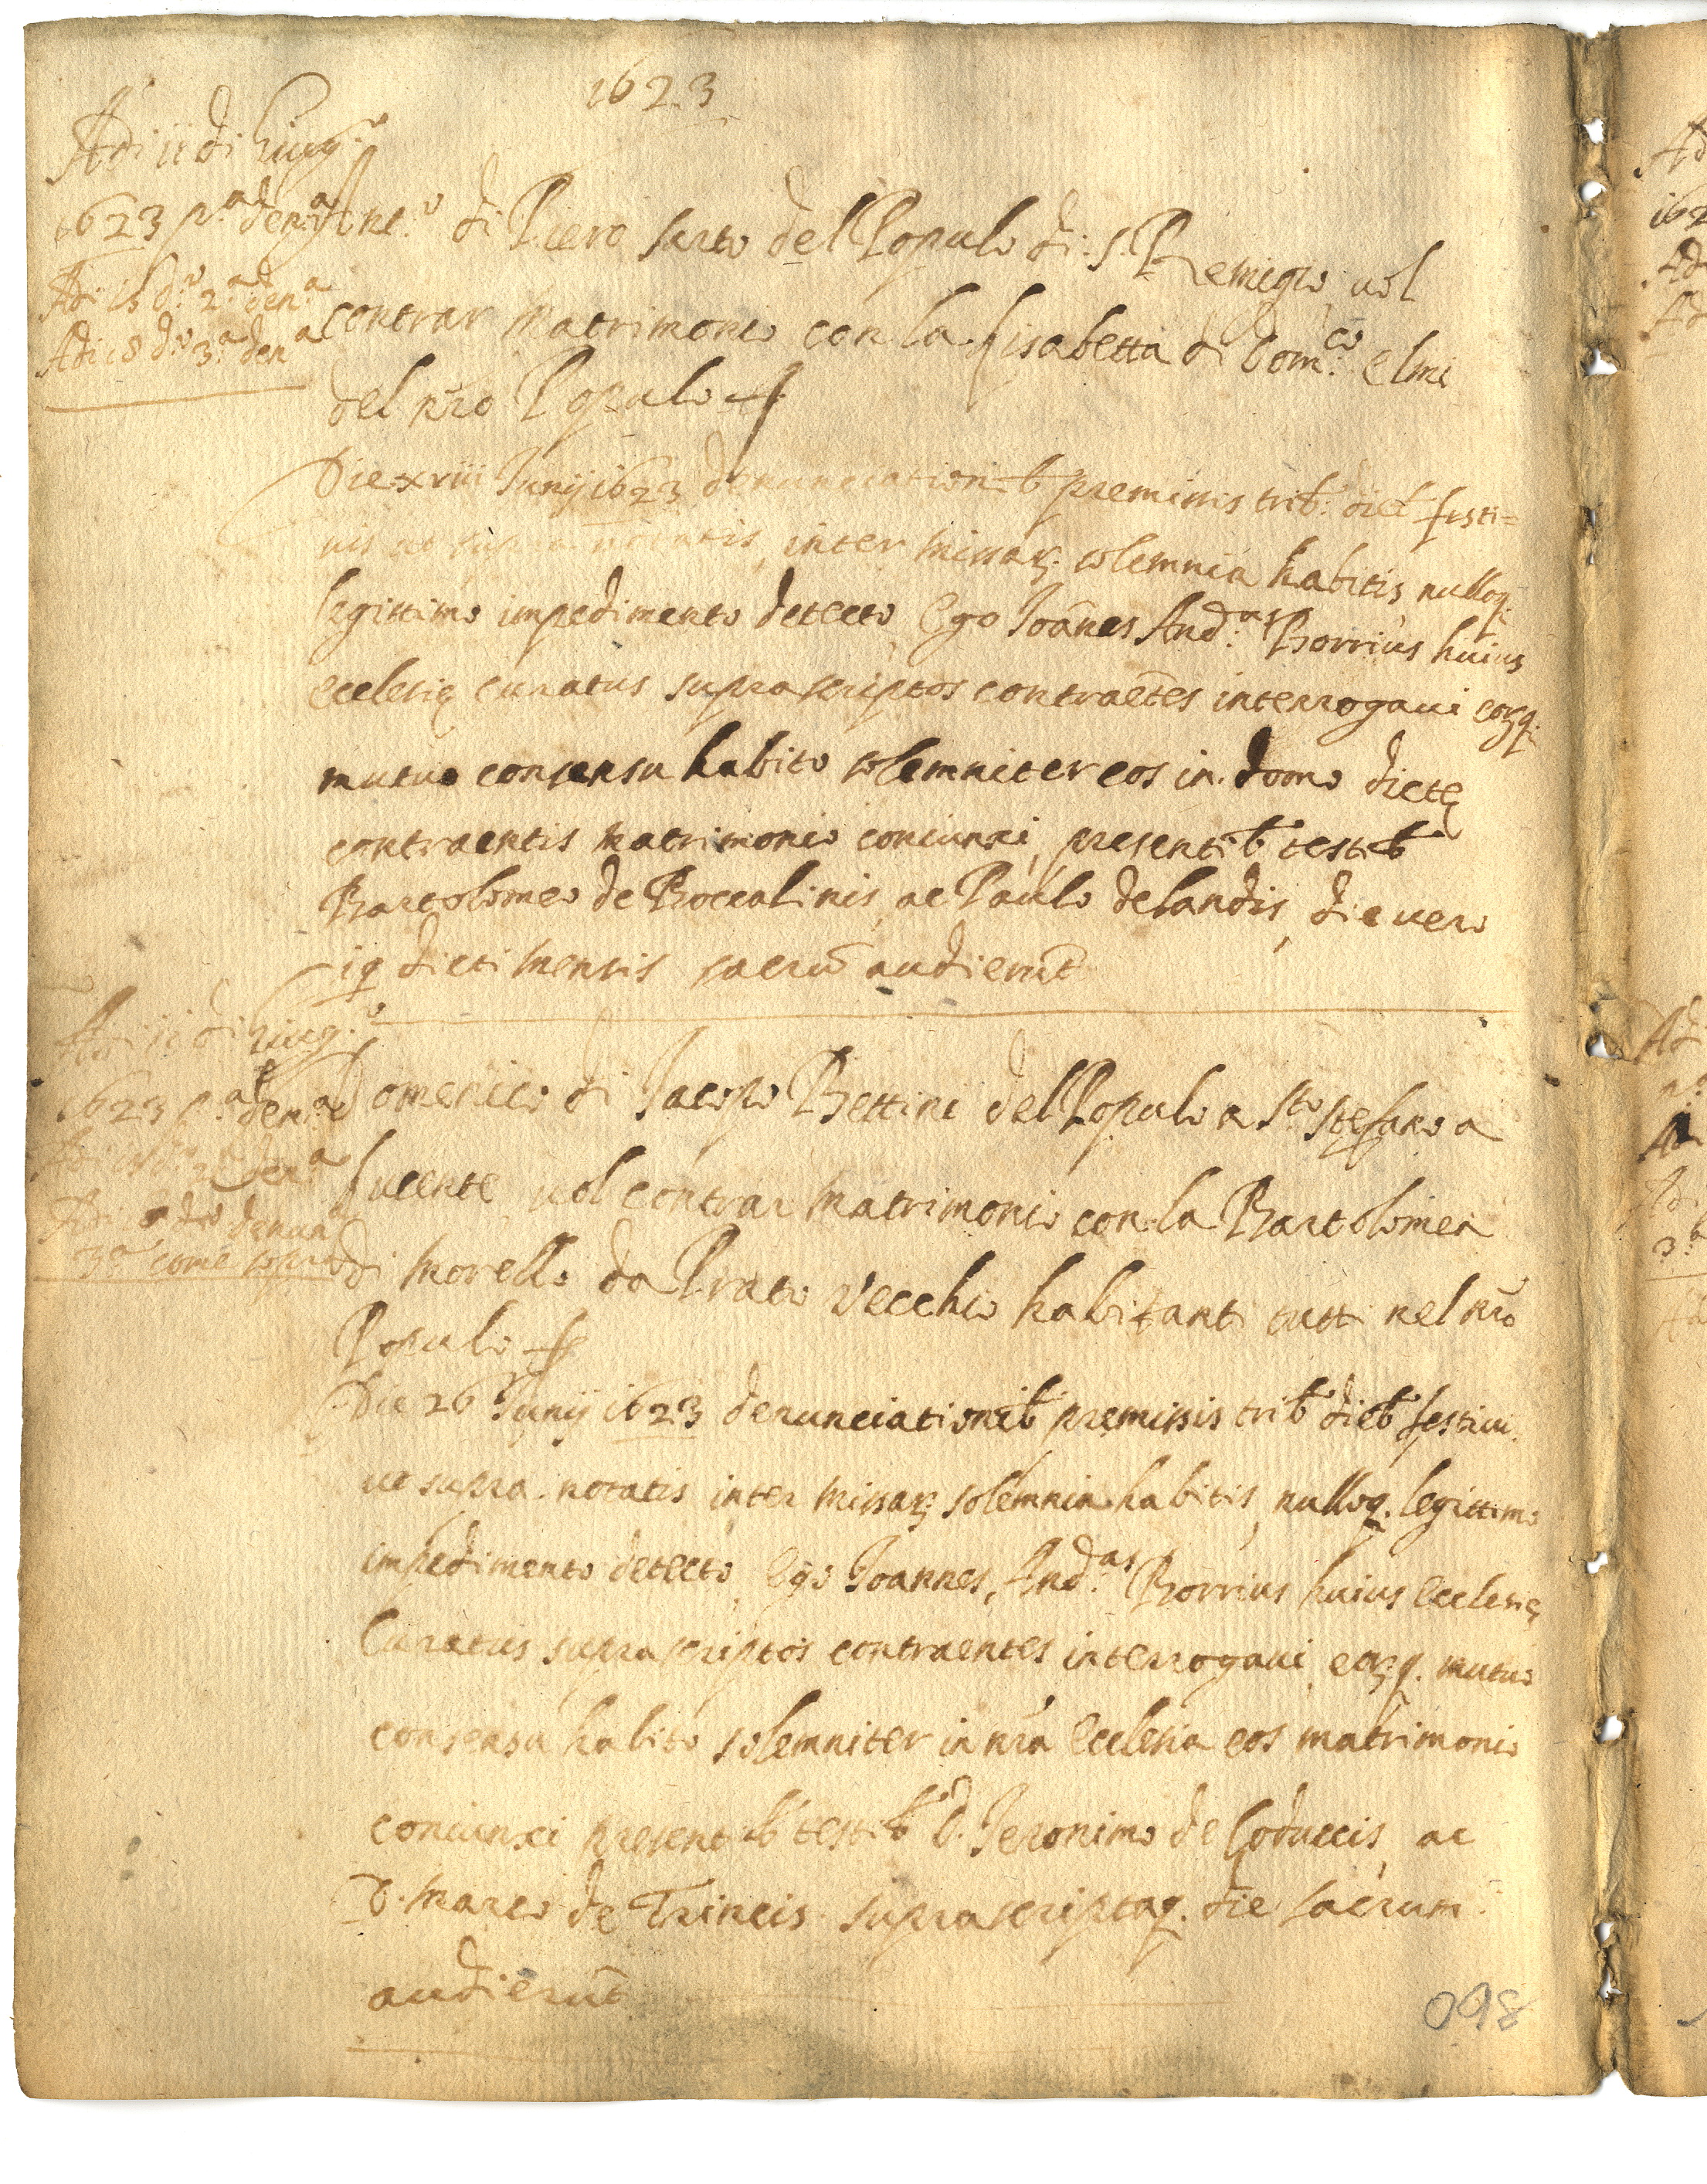 1623
Adi 11 di Giug.o
1623 p.a den.a
Adi 15 d.o 2.a den.a
Adi 18 d.o 3.a den.a
di Piero sarto del Popolo di S. Remigio, vol
contrar matrimonio con la Lisabetta di Dom.co Elmi
del nro Popolo
Die xviii Junij 1623 denunciationib premissis trib. dieb festi=
uis ut supra notatis, inter missaꝝ solemnia habitis, nulloq.
legittimo impedimento detecto, Ego Joãnes And.as Borrius huius
ecclesię curatus suprascriptos contraẽtes interrogaui eoꝝq.
mutuo consensu habito solemniter eos in domo dictę
contraentis matrimonio coniunxi, presentib testib
Bartolomeo de Boccalinis, ac Paulo de Landis, die uero
19 dicti mensis sacrũ audierũt
Adi 11 di Giug.o
1623 p.a den.a
2.a den.a
Adi d.o denun.a
3.a come sopra
Domenico di Jacopo Bettini del Popolo a S.to Stefano a
vol contrar matrimonio con la Bartolomea
di Morello da Prato Vecchio habitanti tutti nel nro
Popolo
Die 26 Junij 1623 denunciationib premissis trib dieb festiui.
ut supra notatis inter missaꝝ solemnia habitis, nulloq. legittimo
impedimento detecto, Ego Joannes And.as Borrius huius Ecclesię
Curatus suprascriptos contraentes interrogaui, eoꝝq. mutuo
consensu habito solemniter in nra Ecclesia eos matrimonio
coniunxi presentib testib D. Jeronimo de Coduccis, ac
D. Marco de Trincis suprascriptaq. die sacrum
audierũt
098